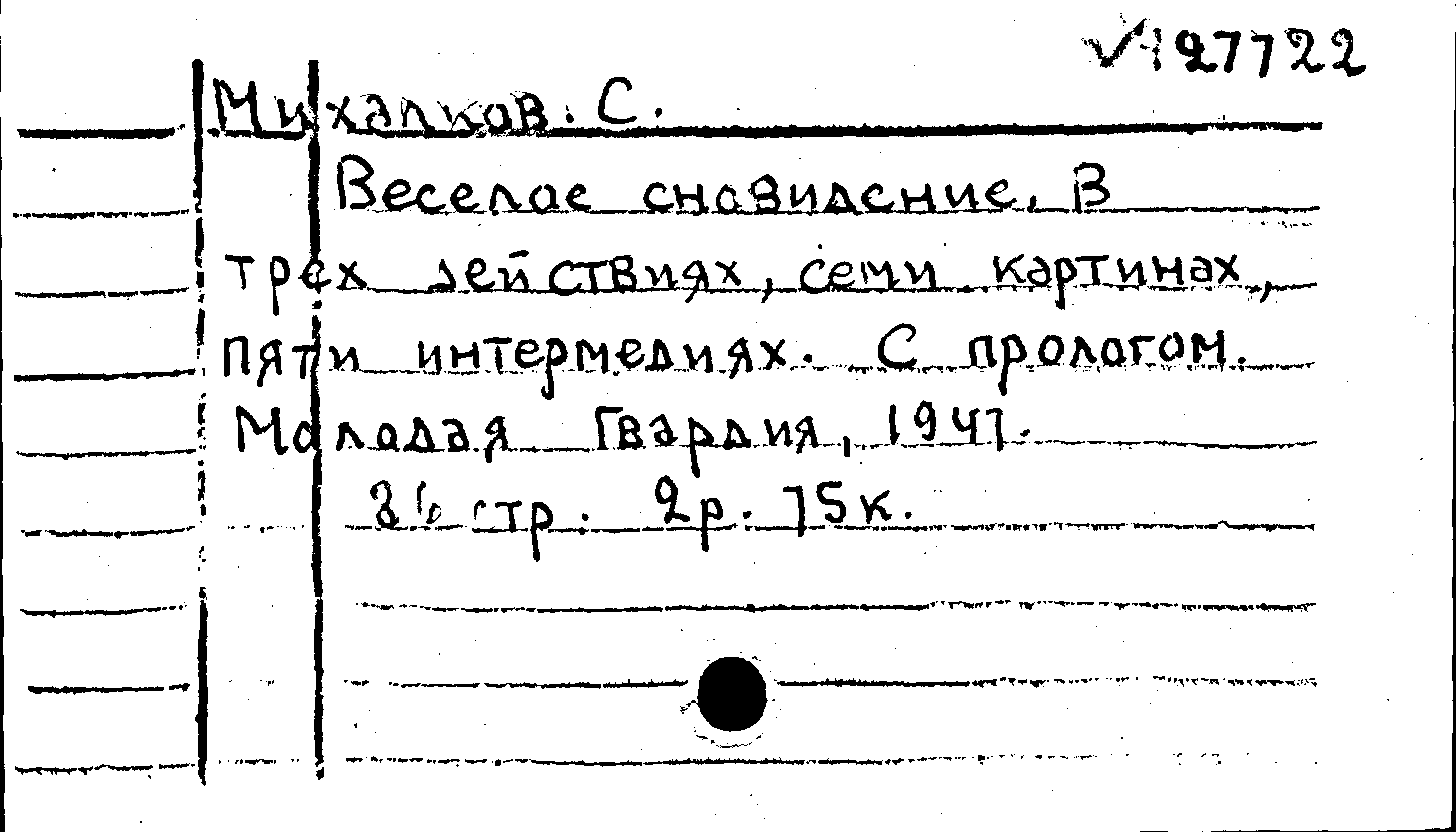 27722
Михалков. С.
Веселое сновидение. В
трех действиях, семи картинах,
пяти интермедиях. С прологом.
Молодая Гвардия, 1947.
стр. 2р. 75к.